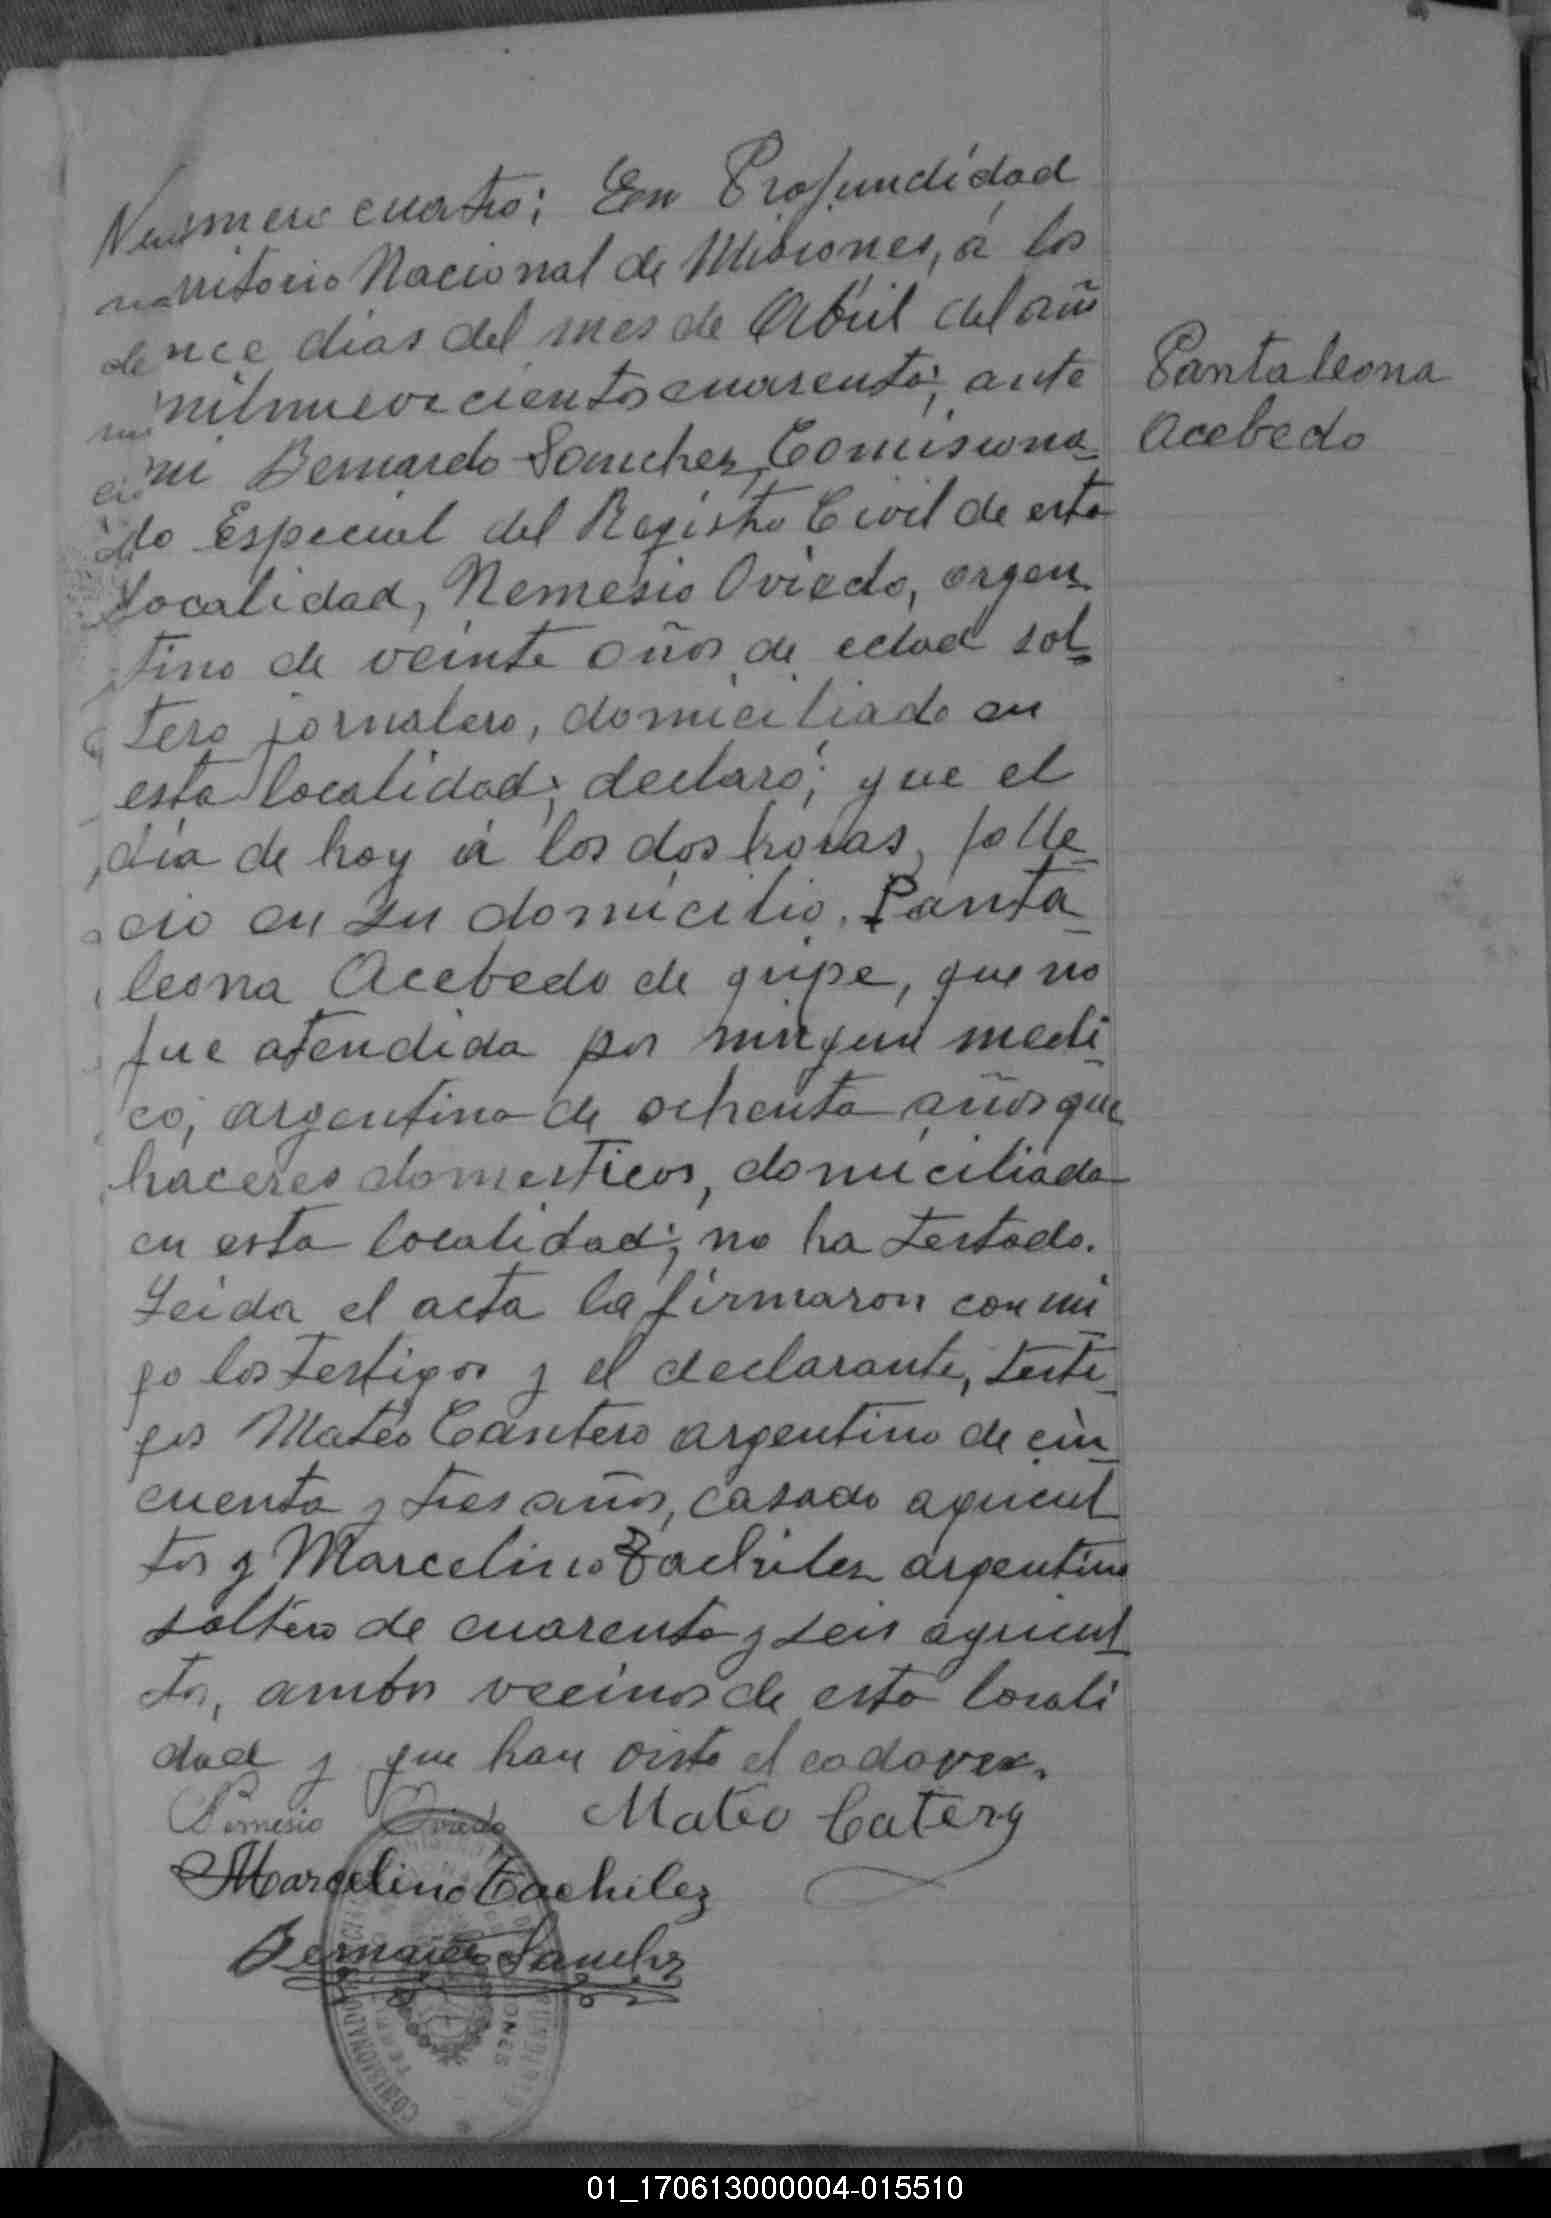 Numero cuatro; En Profundidad
rritorio Nacional de Misiones, á los
nce dias del mes de Abril del año
milnuevecientos cuarenta; ante
mi Bernardo Sanchez, Comisiona-
do Especial del Registro Civil de esta
localidad, Nemesio Oviedo, argen-
tino de veinte años de edad sol-
tero jornalero, domiciliado en
esta localidad; declaró; que el
día de hoy á las dos horas, falle-
cio en su domicilio, Panta-
leona Acebedo de gripe, que no
fue atendida por ningun medi-
co, argentina de ochenta años que
haceres domesticos, domiciliada
en esta localidad; no ha testado.
Leida el acta la firmaron conmi-
go los testigos y el declarante, testi-
gos Mateo Cantero argentino de cin-
cuenta y tres años, casado agricul-
tor y Marcelino Tachilez argentino
soltero de cuarenta y seis agricul-
tor, ambos vecinos de esta locali
dad y que han visto el cadaver.
Pantaleona
Acebedo
Nemesio Oviedo Mateo Catero
Marcelino Tachilez
Bernardo Sanchez
01_170613000004-015510